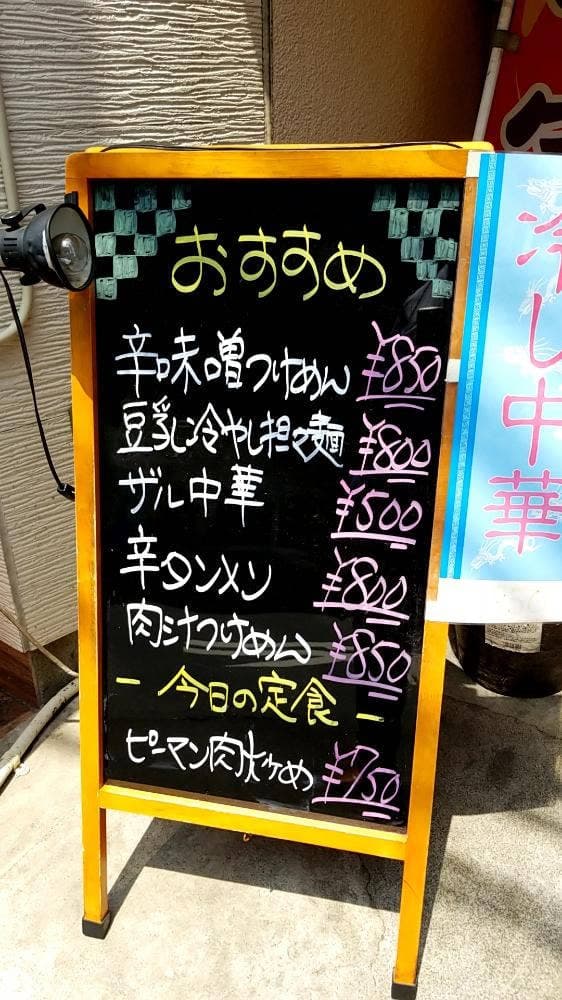 おすすめ
辛味噌つけめん ¥850
豆乳冷やし担々麺 ¥800
ザル中華 ¥500
辛タンメン ¥800
肉汁つけめん ¥850
ー 今日の定食 ー
ピーマン肉炒め ¥750
冷し中華